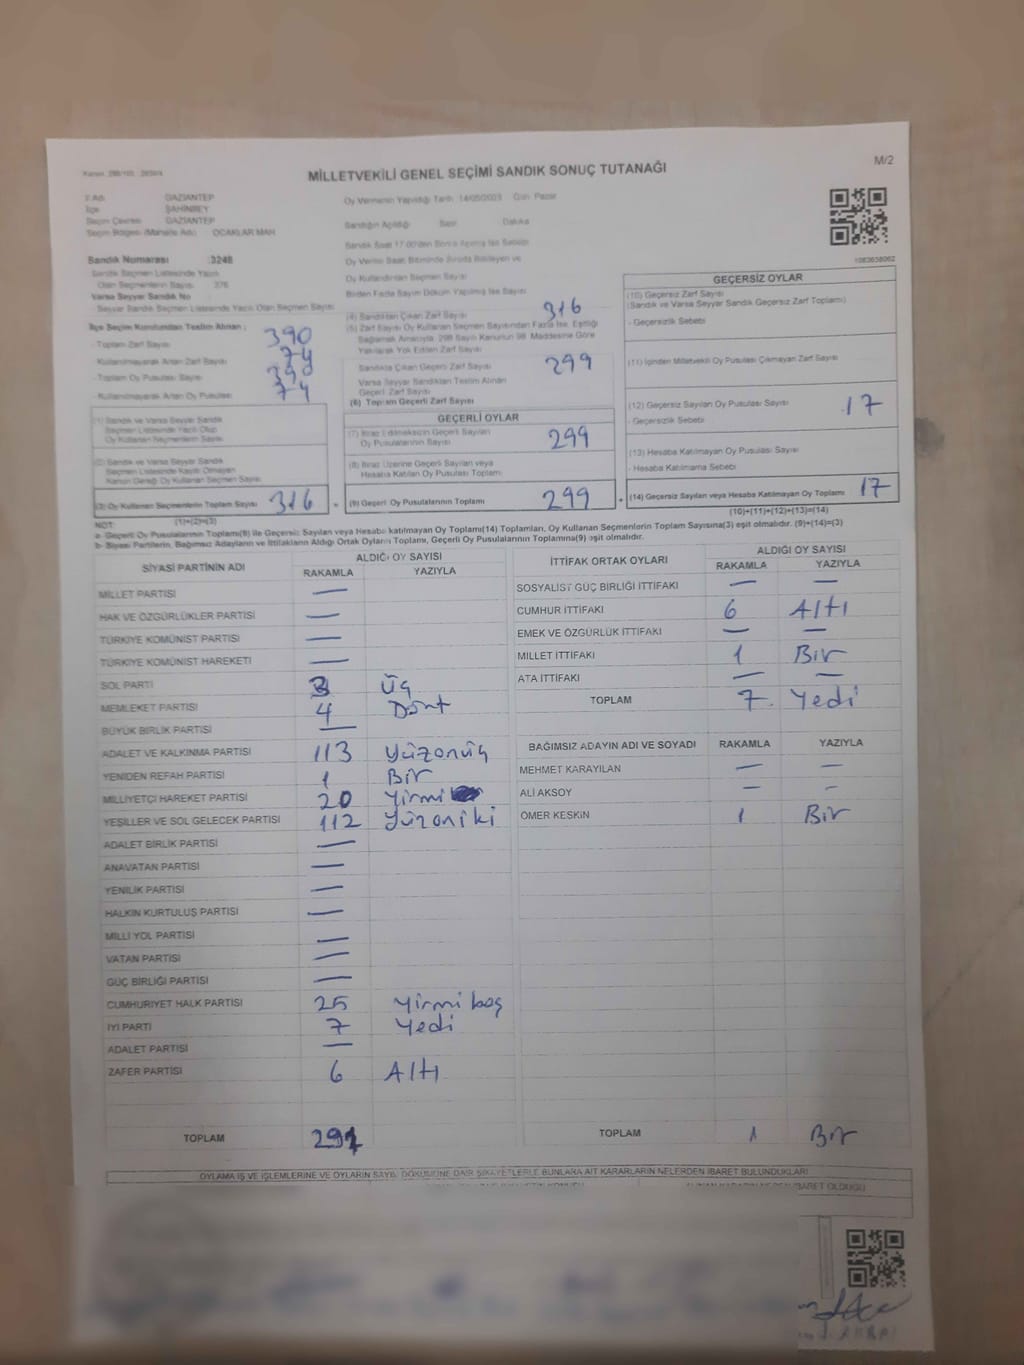 M/2
MİLLETVEKİLİ GENEL SEÇİMİ SANDIK SONUÇ TUTANAĞI
İl Adı GAZİANTEP
İlçe ŞAHİNBEY
Seçim Çevresi GAZİANTEP
Seçim Bölgesi (Mahalle Adı) OCAKLAR MAH
Sandık Numarası 3248
Sandık Seçmen Listesinde Yazılı
Olan Seçmenlerin Sayısı 376
Varsa Seyyar Sandık No
- Seyyar Sandık Seçmen Listesinde Yazılı Olan Seçmen Sayısı
İlçe Seçim Kurulundan Teslim Alınan ;
- Toplam Zarf Sayısı 390
- Kullanılmayarak Artan Zarf Sayısı 74
- Toplam Oy Pusulası Sayısı 390
- Kullanılmayarak Artan Oy Pusulası 74
(1) Sandık ve Varsa Seyyar Sandık
Seçmen Listesinde Yazılı Olup
Oy Kullanan Seçmenlerin Sayısı
(2) Sandık ve Varsa Seyyar Sandık
Seçmen Listesinde Kayıtlı Olmayan
Kanun Gereği Oy Kullanan Seçmen Sayısı
(3) Oy Kullanan Seçmenlerin Toplam Sayısı 316 =
(1)+(2)=(3)
Oy Vermenin Yapıldığı Tarih Gün Pazar
Sandığın Açıldığı Saat Dakika
Sandık Saat 17.00'den Sonra Açılmış İse Sebebi
Oy Verme Saati Bitiminde Sırada Bekleyen ve
Oy Kullandırılan Seçmen Sayısı
Birden Fazla Sayım Döküm Yapılmış İse Sayısı
(4) Sandıktan Çıkan Zarf Sayısı 316
(5) Zarf Sayısı Oy Kullanan Seçmen Sayısından Fazla İse, Eşitliği
Sağlamak Amacıyla, 298 Sayılı Kanunun 98. Maddesine Göre
Yakılarak Yok Edilen Zarf Sayısı
Sandıkta Çıkan Geçerli Zarf Sayısı 299
Varsa Seyyar Sandıktan Teslim Alınan
Geçerli Zarf Sayısı
(6) Toplam Geçerli Zarf Sayısı
GEÇERLİ OYLAR
(7) İtiraz Edilmeksizin Geçerli Sayılan
Oy Pusulalarının Sayısı 299
(8) İtiraz Üzerine Geçerli Sayılan veya
Hesaba Katılan Oy Pusulası Toplamı
(9) Geçerli Oy Pusulalarının Toplamı 299 +
GEÇERSİZ OYLAR
(10) Geçersiz Zarf Sayısı
(Sandık ve Varsa Seyyar Sandık Geçersiz Zarf Toplamı)
- Geçersizlik Sebebi
(11) İçinden Milletvekili Oy Pusulası Çıkmayan Zarf Sayısı
(12) Geçersiz Sayılan Oy Pusulası Sayısı 17
- Geçersizlik Sebebi
(13) Hesaba Katılmayan Oy Pusulası Sayısı
- Hesaba Katılmama Sebebi
(14) Geçersiz Sayılan veya Hesaba Katılmayan Oy Toplamı 17
(10)+(11)+(12)+(13)=(14)
NOT:
a- Geçerli Oy Pusulalarının Toplamı(9) ile Geçersiz Sayılan veya Hesaba katılmayan Oy Toplamı(14) Toplamları, Oy Kullanan Seçmenlerin Toplam Sayısına(3) eşit olmalıdır. (9)+(14)=(3)
b- Siyasi Partilerin, Bağımsız Adayların ve İttifakların Aldığı Ortak Oyların Toplamı, Geçerli Oy Pusulalarının Toplamına(9) eşit olmalıdır.
SİYASİ PARTİNİN ADI ALDIĞI OY SAYISI
RAKAMLA YAZIYLA
MİLLET PARTİSİ —
HAK VE ÖZGÜRLÜKLER PARTİSİ —
TÜRKİYE KOMÜNİST PARTİSİ —
TÜRKİYE KOMÜNİST HAREKETİ —
SOL PARTİ 3 üç
MEMLEKET PARTİSİ 4 Dört
BÜYÜK BİRLİK PARTİSİ —
ADALET VE KALKINMA PARTİSİ 113 yüzonüç
YENİDEN REFAH PARTİSİ 1 Bir
MİLLİYETÇİ HAREKET PARTİSİ 20 yirmi
YEŞİLLER VE SOL GELECEK PARTİSİ 112 yüzoniki
ADALET BİRLİK PARTİSİ —
ANAVATAN PARTİSİ —
YENİLİK PARTİSİ —
HALKIN KURTULUŞ PARTİSİ —
MİLLİ YOL PARTİSİ —
VATAN PARTİSİ —
GÜÇ BİRLİĞİ PARTİSİ —
CUMHURİYET HALK PARTİSİ 25 yirmi beş
İYİ PARTİ 7 yedi
ADALET PARTİSİ —
ZAFER PARTİSİ 6 Altı
TOPLAM 291
İTTİFAK ORTAK OYLARI ALDIĞI OY SAYISI
RAKAMLA YAZIYLA
SOSYALİST GÜÇ BİRLİĞİ İTTİFAKI — —
CUMHUR İTTİFAKI 6 Altı
EMEK VE ÖZGÜRLÜK İTTİFAKI — —
MİLLET İTTİFAKI 1 Bir
ATA İTTİFAKI — —
TOPLAM 7 yedi
BAĞIMSIZ ADAYIN ADI VE SOYADI RAKAMLA YAZIYLA
MEHMET KARAYILAN — —
ALİ AKSOY — —
ÖMER KESKİN 1 Bir
TOPLAM 1 Bir
OYLAMA İŞ VE İŞLEMLERİNE VE OYLARIN SAYIM DÖKÜMÜNE DAİR ŞİKAYETLERLE BUNLARA AİT KARARLARIN NELERDEN İBARET BULUNDUKLARI